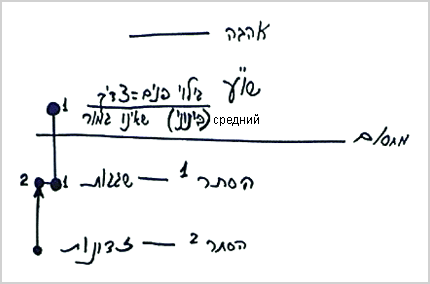 אהבה
שו"ע
1 גילוי פנים = צדיק
שאינו גמור (בינוני) средний
מחסום
2 1 שגגות — הסתר 1
זדונות — הסתר 2